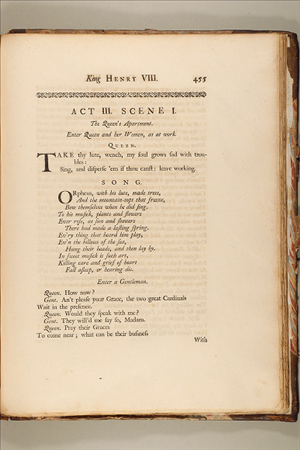 King HENRY VIII. 455
ACT III. SCENE I.
The Queen's Apartment.
Enter Queen and her Women, as at work.
QUEEN.
TAKE thy lute, wench, my soul grows sad with trou-
bles:
Sing, and disperse 'em if thou canst: leave working.
SONG.
ORpheus, with his lute, made trees,
And the mountain-tops that freeze,
Bow themselves when he did sing.
To his musick, plants and flowers
Ever rise, as sun and showers
There had made a lasting spring.
Ev'ry thing that heard him play,
Ev'n the billows of the sea,
Hung their heads, and then lay by.
In sweet musick is such art,
Killing care and grief of heart
Fall asleep, or hearing die.
Enter a Gentleman.
Queen. How now?
Gent. An't please your Grace, the two great Cardinals
Wait in the presence.
Queen. Would they speak with me?
Gent. They will'd me say so, Madam.
Queen. Pray their Graces
To come near; what can be their business
With